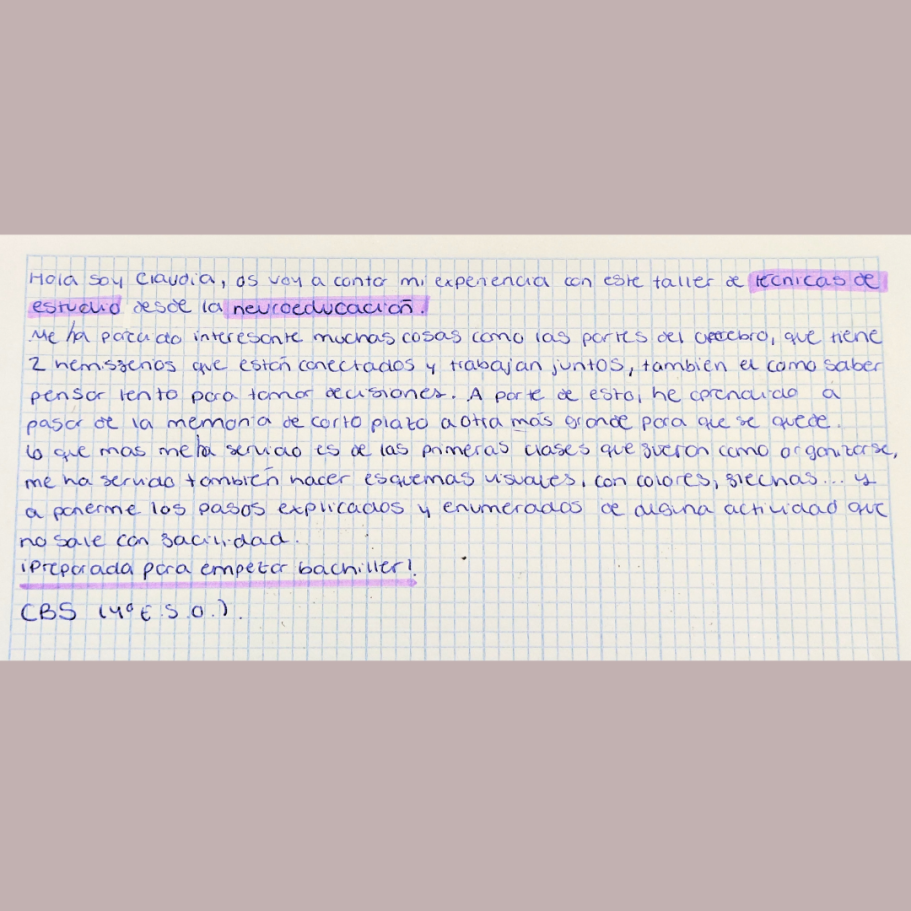 Hola soy Claudia, os voy a contar mi experiencia con este taller de técnicas de
estudio desde la neuroeducación.
Me ha parecido interesante muchas cosas como las partes del cerebro, que tiene
2 hemisferios que están conectados y trabajan juntos, tambien el como saber
pensar lento para tomar decisiones. A parte de esto, he aprendido a
pasar de la memoria de corto plazo a otra más grande para que se quede.
Lo que mas me ha servido es de las primeras clases que fueron como organizarse,
me ha servido también hacer esquemas visuales, con colores, flechas... y
a ponerme los pasos explicados y enumerados de alguna actividad que
no sale con facilidad.
¡Preparada para empezar bachiller!
CBS (4º E.S.O.).